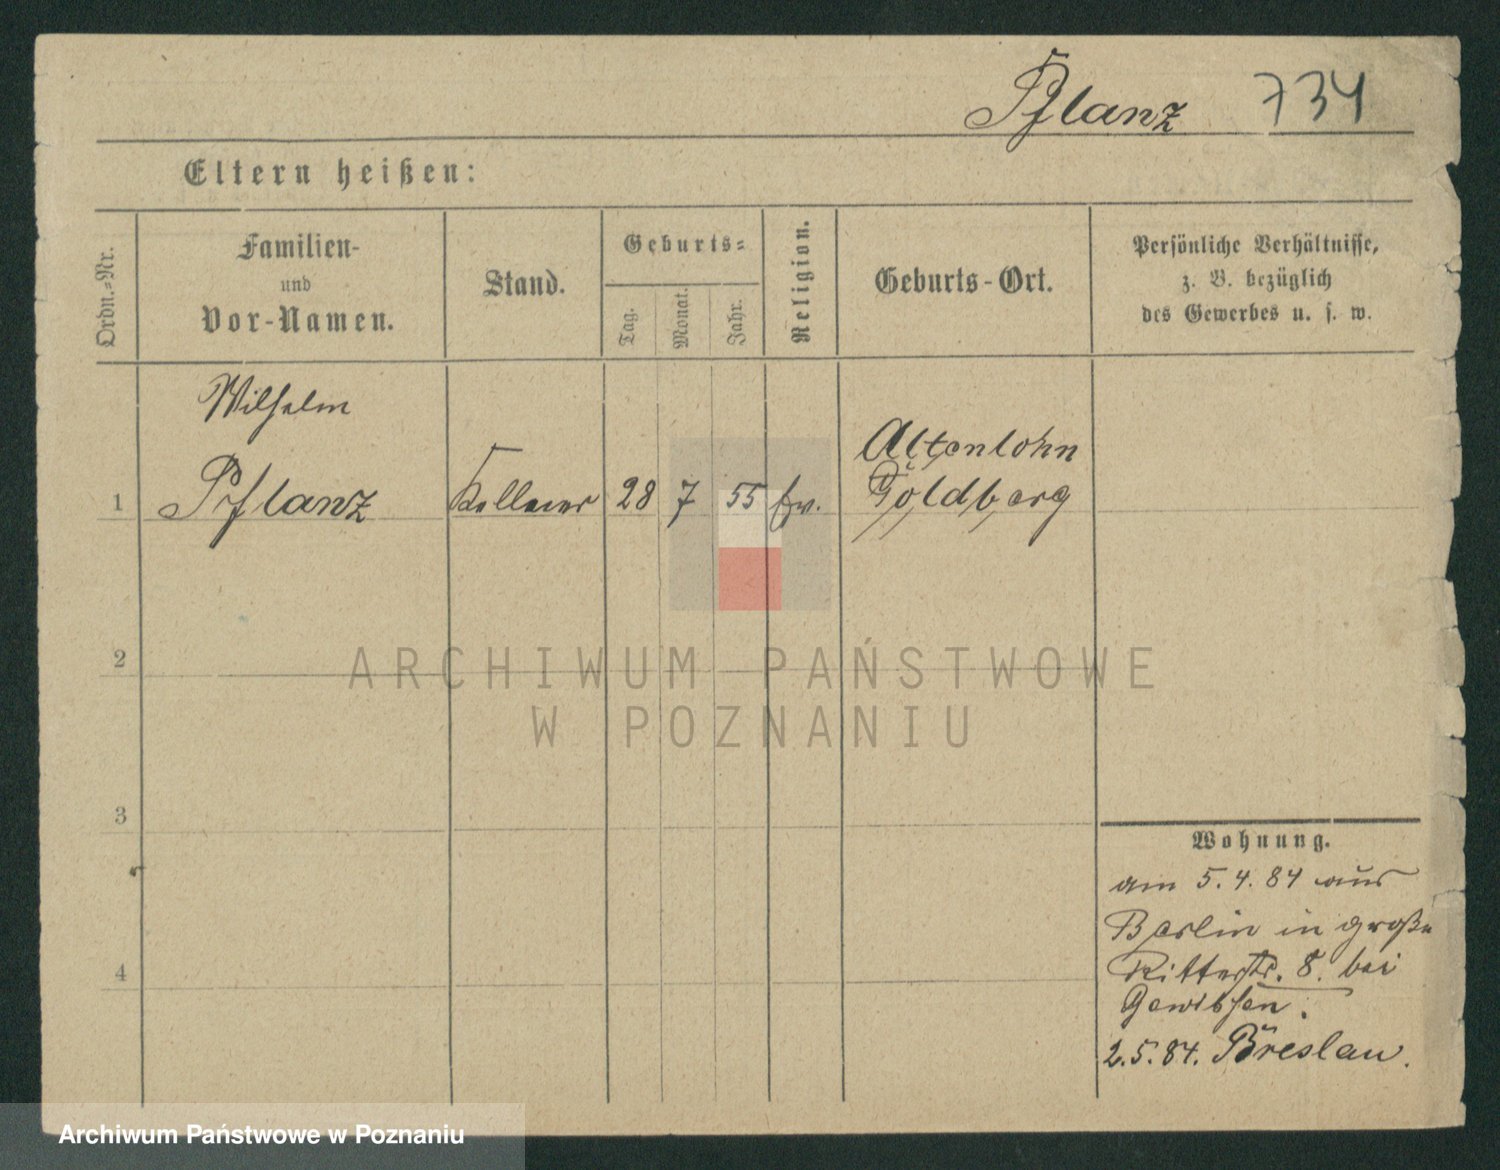 Pflanz 734
Eltern heißen:
Ordn.-Nr.
Familien-
und
Vor-Namen.
Stand.
Geburts-
Tag.
Monat.
Jahr.
Religion.
Geburts-Ort.
Persönliche Verhältnisse,
z. B. bezüglich
des Gewerbes u. s. w.
Wilhelm
Altenlohn
1 Pflanz Kellner 28 7 55 Ev. Goldberg
2
ARCHIWUM PAŃSTWOWE
W POZNANIU
3
4
Wohnung.
am 5.4.84 aus
Berlin in große
Ritterstr. 8. bei
2.5.84. Breslau.
Archiwum Państwowe w Poznaniu